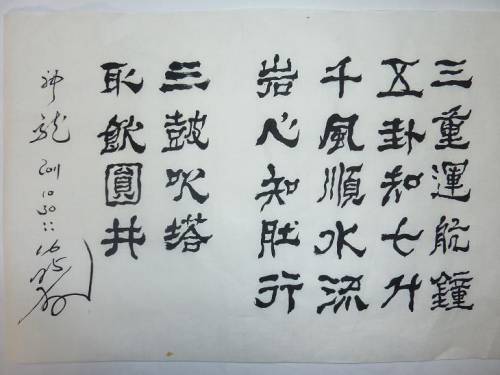 三重運航鐘
五卦知七升
千風順水流
岩心知肚行
三鼓吹塔
飲圓井
神龍 2011 10 30